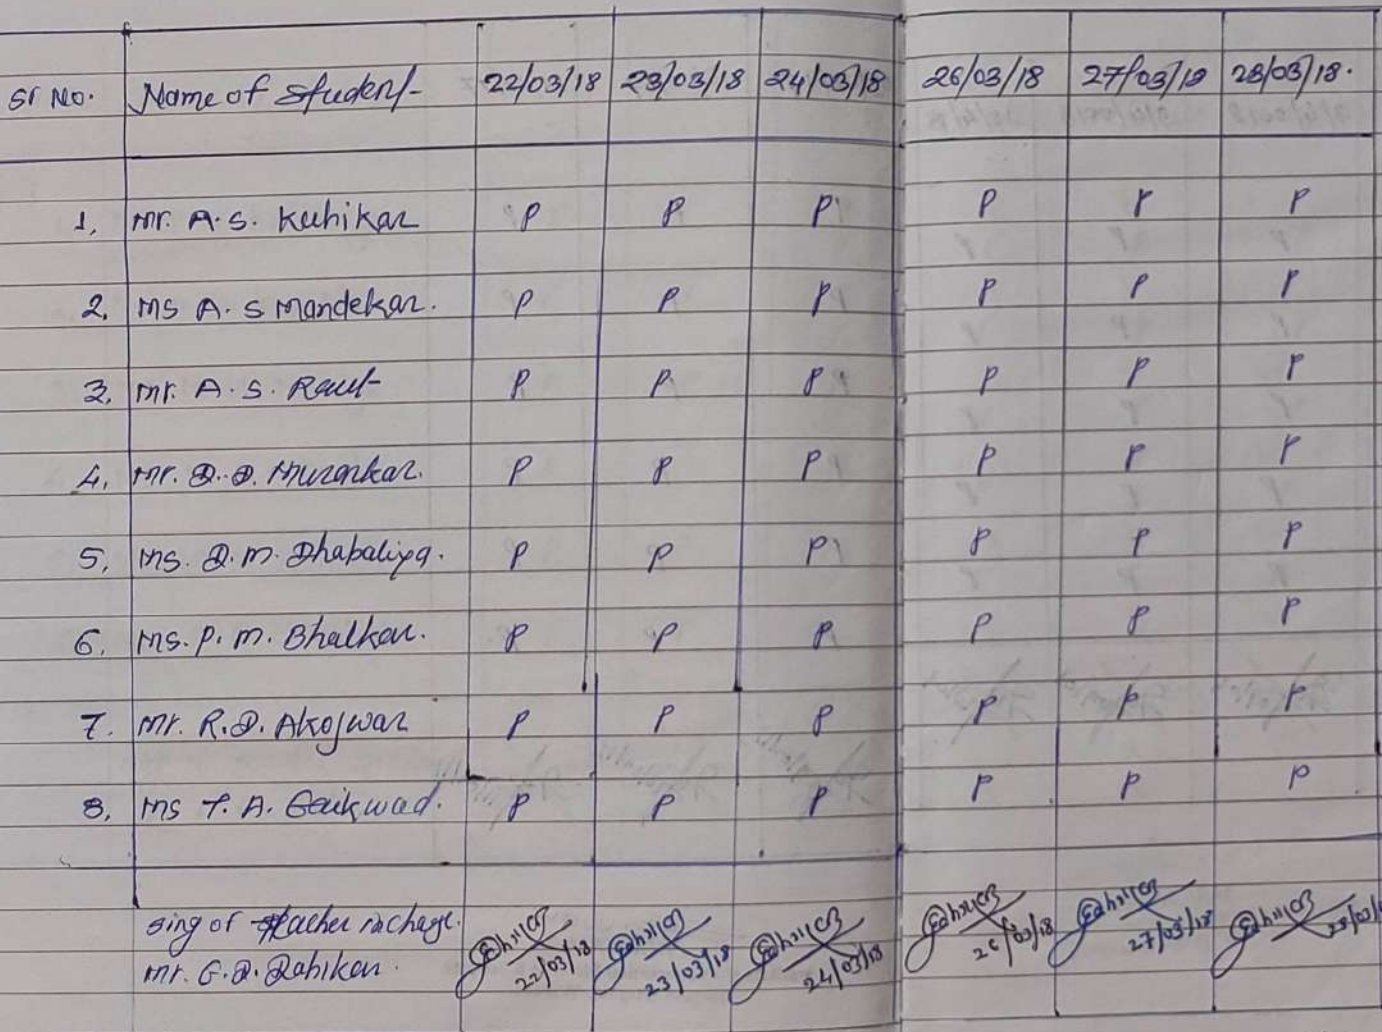 Sr No. Name of Student 22/03/18 23/03/18 24/03/18 26/03/18 27/03/18 28/03/18.
1. Mr. A.S. Kuhikar P P P P P P
2. Ms A. S Mandekar. P P P P P P
3. Mr. A.S. Raut P P P P P P
4. Mr. D.D. Murarkar. P P P P P P
5. Ms. D.M. Dhabaliya. P P P P P P
6. Ms. P. M. Bhalkar. P P P P P P
7. Mr. R.D. Akojwar P P P P P P
8. Ms T. A. Gaikwad. P P P P P P
sing of teacher incharge.
Mr. G.D. Dahikar.
22/03/18 23/03/18 24/03/18 26/03/18 27/03/18 28/03/